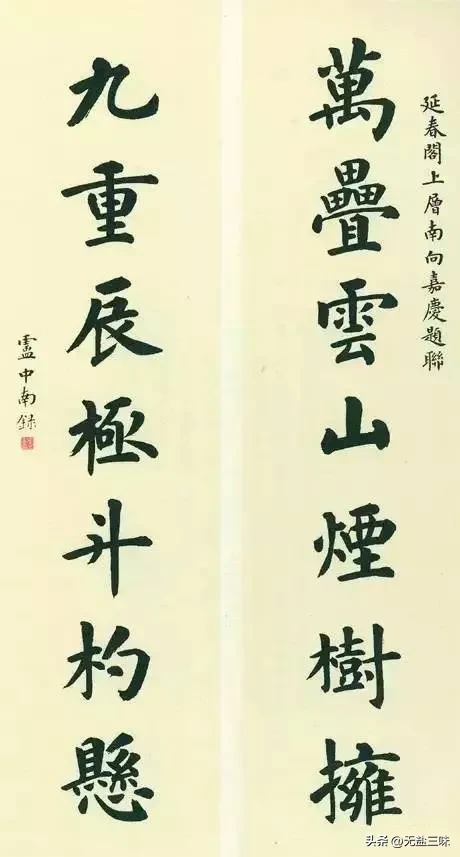 延春閣上層南向嘉慶題聯
萬疊雲山煙樹擁
九重辰極斗杓懸
盧中南錄
头条 @无盐三味